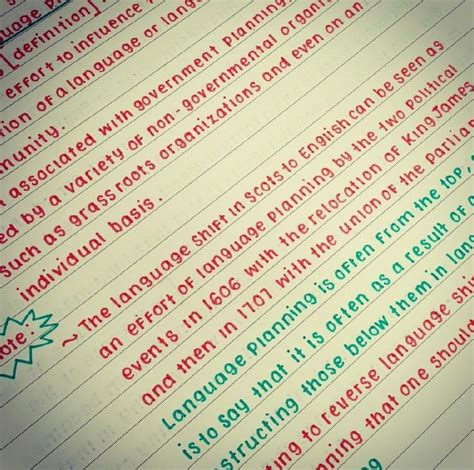 [definition]
effort to influence
ion of a language or lang
munity.
associated with government planning,
ed by a variety of non-governmental organis
such as grass roots organizations and even on an
individual basis.
~ The language shift in Scots to English can be seen as
an effort of language planning by the two political
events in 1606 with the relocation of King James
and then in 1707 with the union of the Parlia
Language Planning is often from the top,
is to say that it is often as a result of
structing those below them in lan
ing to reverse language s
ning that one shoul